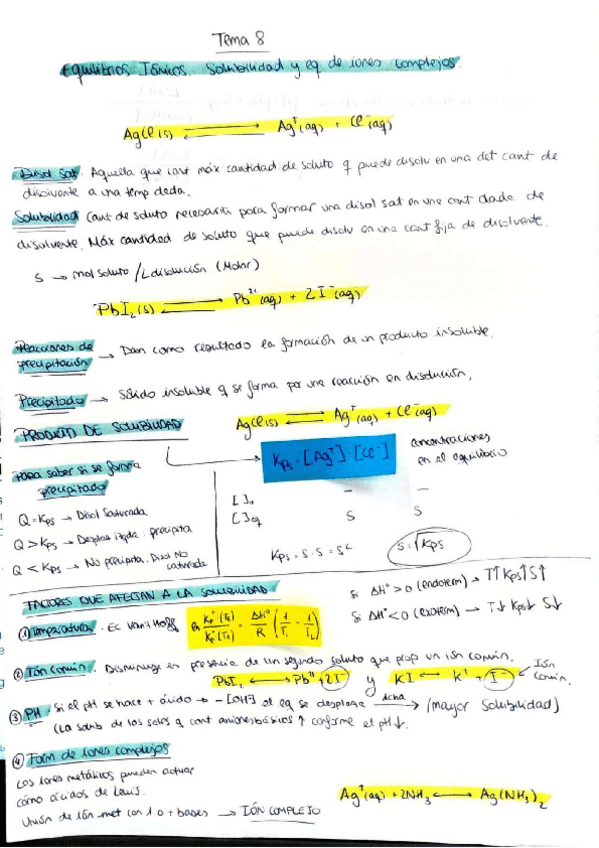 Tema 8
Equilibrios Iónicos. Solubilidad y eq de iones complejos.
AgCl(s) ⇌ Ag⁺(aq) + Cl⁻(aq)
Disol sat. Aquella que cont máx cantidad de soluto q puede disolv en una det cant de
disolvente a una temp dada.
Solubilidad Cant de soluto necesaria para formar una disol sat en una cant dada de
disolvente. Máx cantidad de soluto que puede disolv en una cant fija de disolvente.
S → mol soluto / L disolución (Molar)
PbI₂(s) ⇌ Pb²⁺(aq) + 2I⁻(aq)
Reacciones de precipitación → Dan como resultado la formación de un producto insoluble.
Precipitado → Sólido insoluble q se forma por una reacción en disolución.
PRODUCTO DE SOLUBILIDAD
AgCl(s) ⇌ Ag⁺(aq) + Cl⁻(aq)
Kps = [Ag⁺]·[Cl⁻]
concentraciones
en el equilibrio
Para saber si se forma
precipitado
Q = Kps → Disol Saturada
Q > Kps → Desplaz izqda: precipita
Q < Kps → No precipita. Disol No
saturada
[ ]₀ - -
[ ]eq S S
Kps = S·S = S²
S = √Kps
FACTORES QUE AFECTAN A LA SOLUBILIDAD
① Temperatura. Ec Van't Hoff
ln K°ps(T₂)/K°ps(T₁) = ΔH°/R (1/T₁ - 1/T₂)
Si ΔH° > 0 (endoterm) → T↑ Kps↑ S↑
Si ΔH° < 0 (exoterm) → T↓ Kps↓ S↓
② Ión común. Disminuye en presencia de un segundo soluto que prop un ión común.
PbI₂ ⟷ Pb²⁺ + 2I⁻ y KI ⟷ K⁺ + I⁻
Ión
común.
③ PH. Si el pH se hace + ácido → - [OH⁻] el eq se desplaza dcha → (mayor solubilidad)
(La solub de las sales q cont aniones básicos ↑ conforme el pH↓.
④ Form de iones complejos
Los iones metálicos pueden actuar
como ácidos de Lewis.
Unión de ión met con 1 o + bases → IÓN COMPLEJO
Ag⁺(aq) + 2NH₃ ⟷ Ag(NH₃)₂